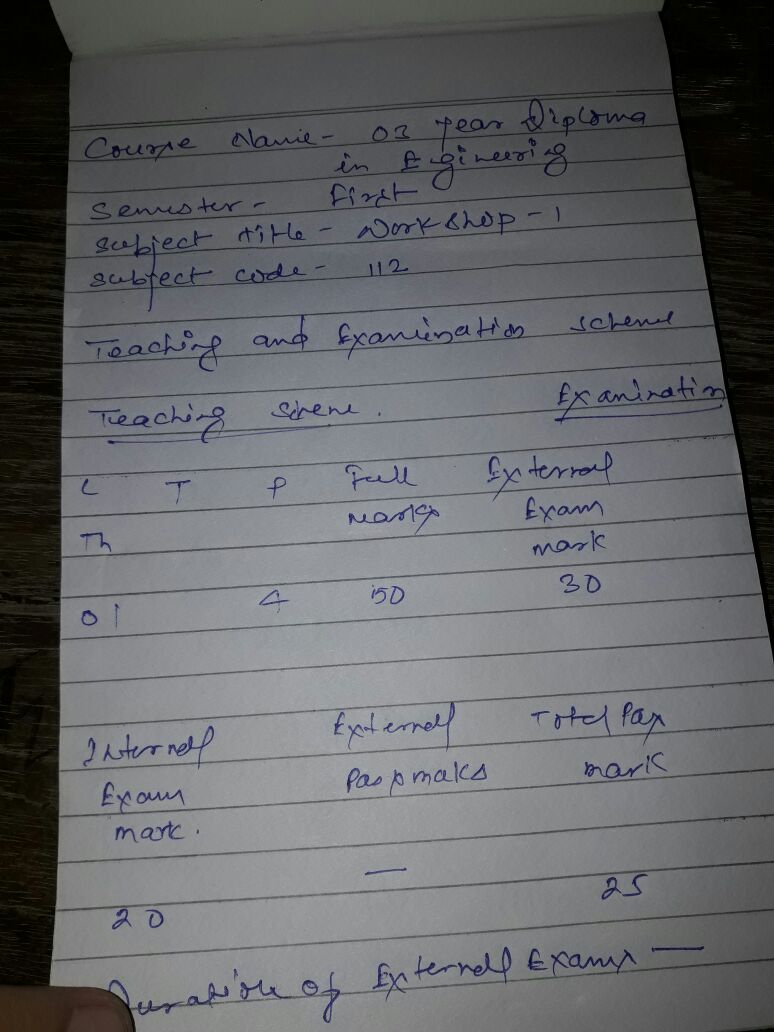 Course Name - 03 year Diploma
in Engineering
Semester - First
Subject title - Workshop - 1
Subject code - 112
Teaching and Examination Scheme
Teaching Scheme. Examination
L T P Full External
Marks Exam
Th mark
01 4 50 30
Internal External Total Pass
Exam Pass maks mark
mark.
—
20 25
Duration of External Exams —